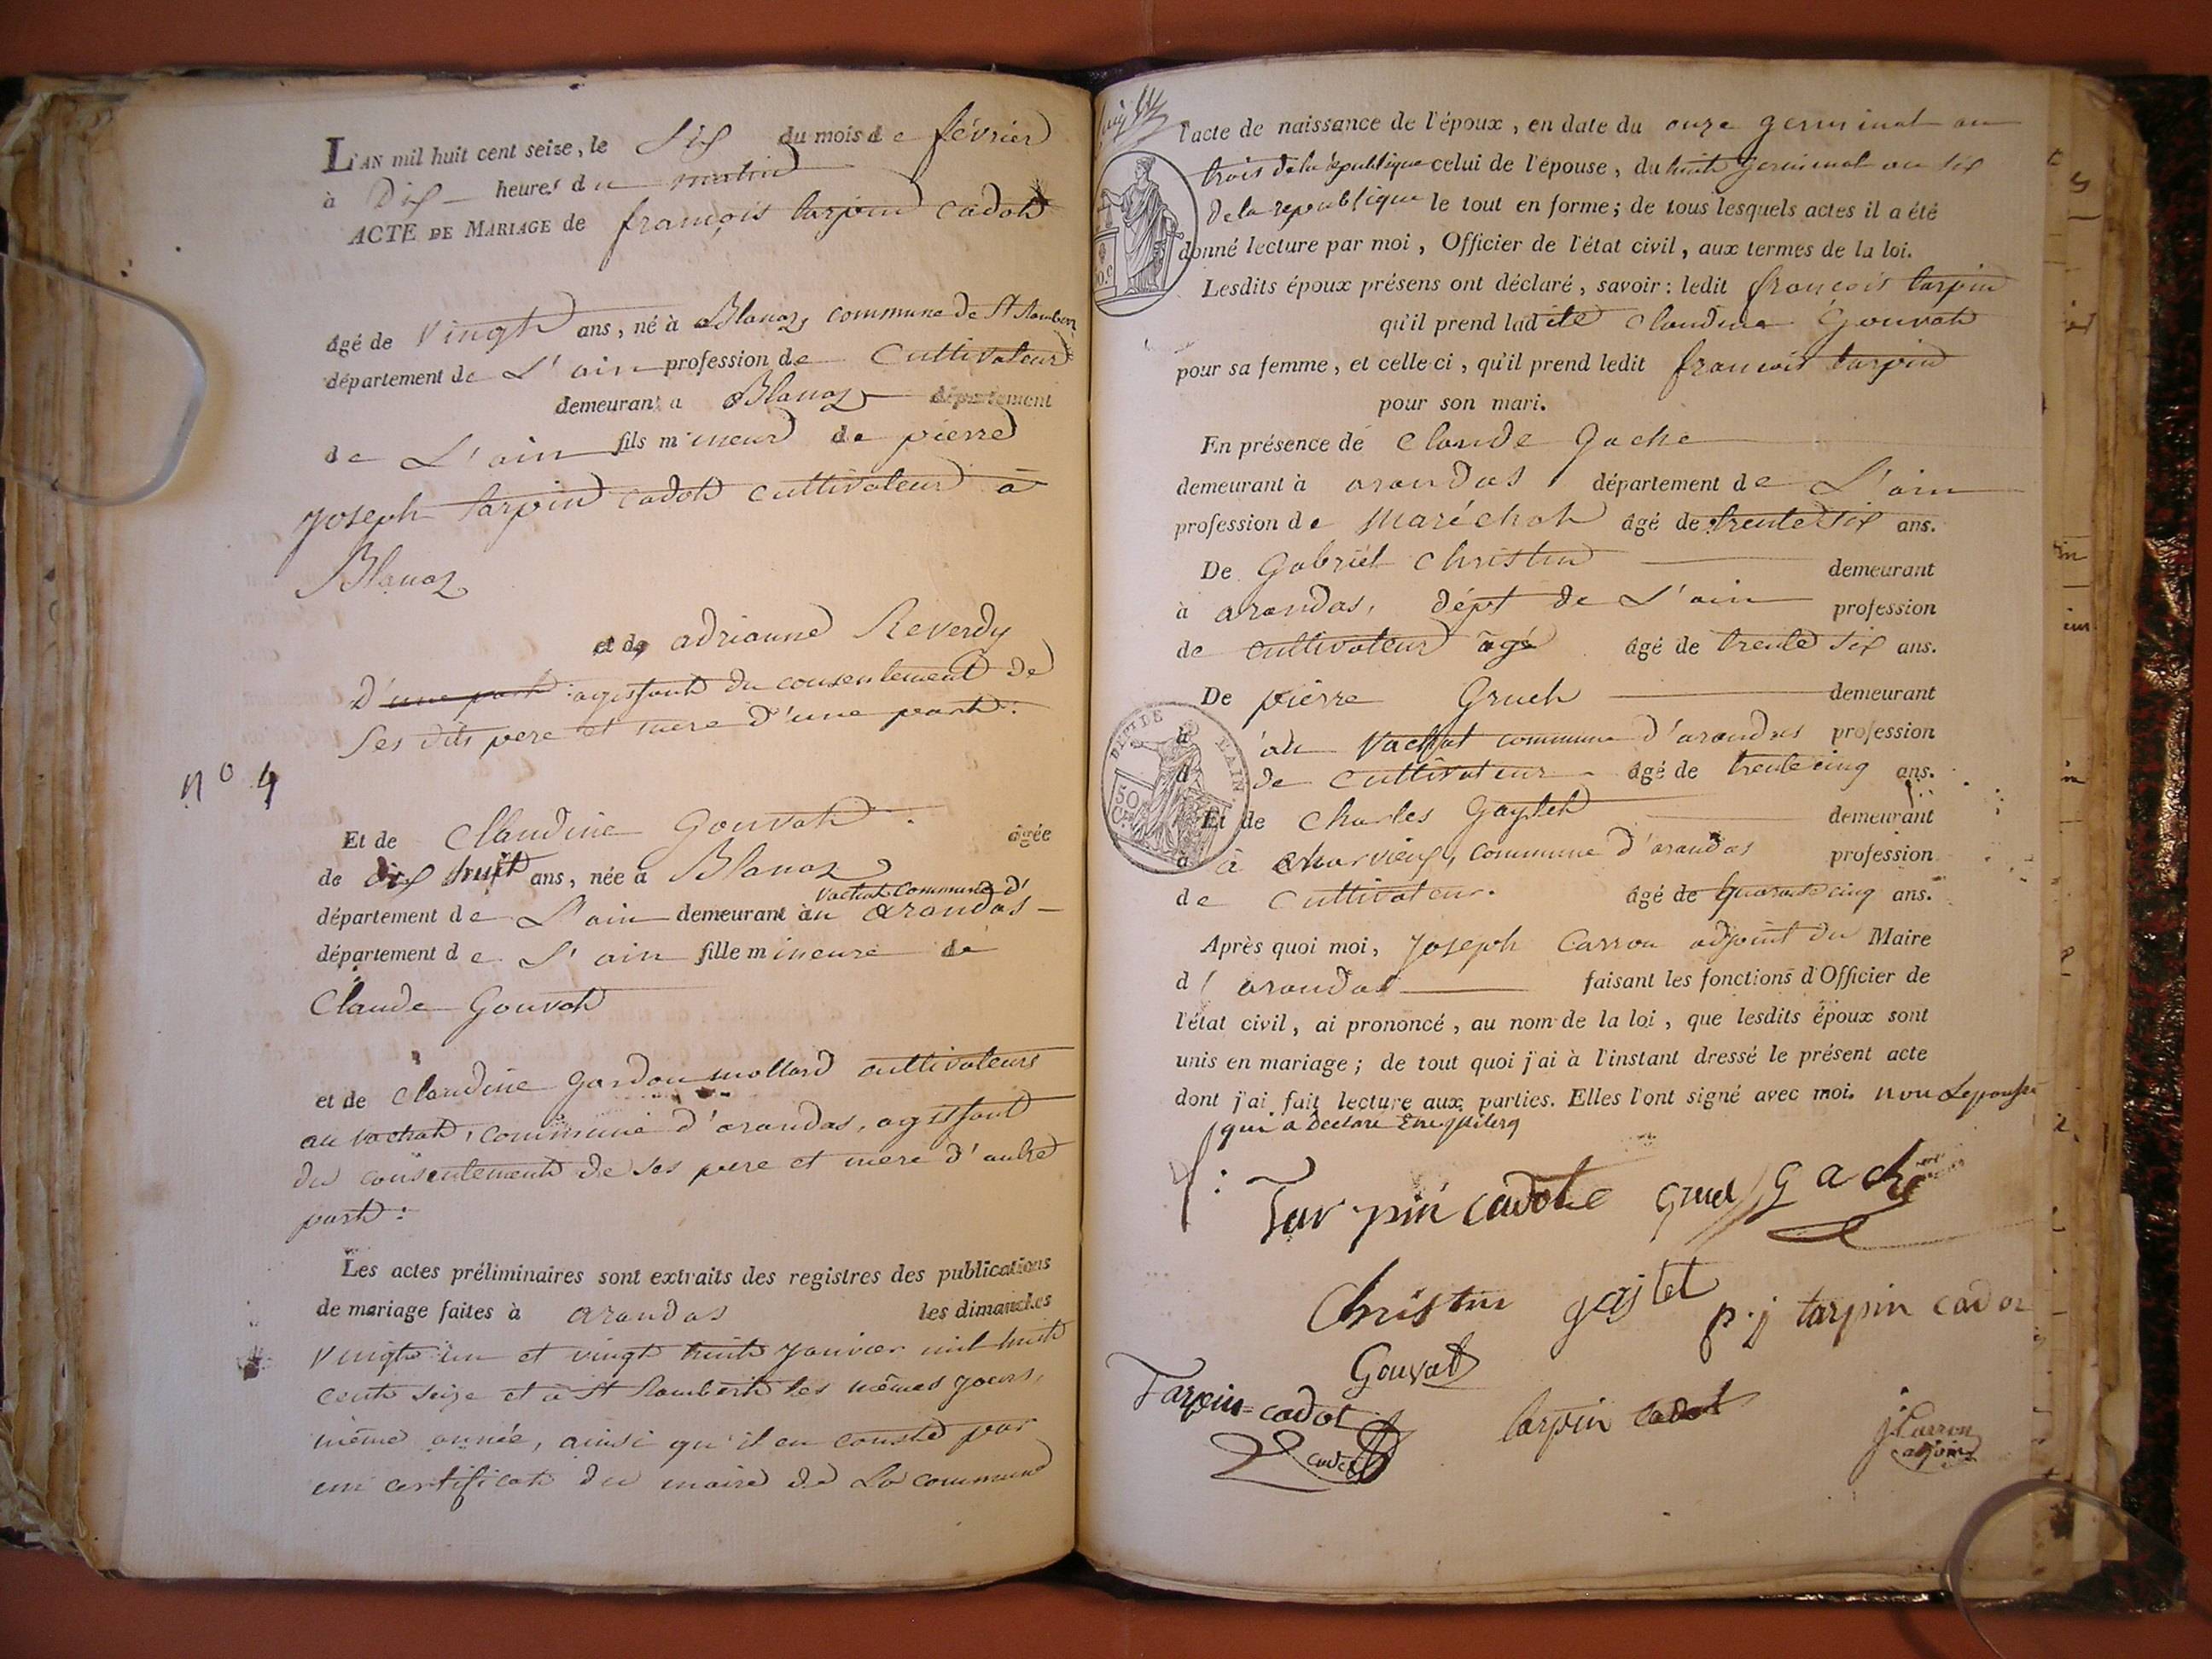 L'AN mil huit cent seize, le six du mois de février
à Dix heures du matin
ACTE DE MARIAGE de françois tarpin cadot
âgé de vingt ans, né à Blanaz, commune de St Rambert
département de L'ain profession de Cultivateur
demeurant a Blanaz département
de L'ain fils mineur de pierre
joseph tarpin cadot cultivateur à
Blanaz
et de adrianne Reverdy
D'une part agissant du consentement de
ses dits pere et mere d'une part.
n° 4
Et de Claudine Gouvat âgée
de dix huit ans, née à Blanaz
vachat commune d'
département de L'ain demeurant au arandas
département de L'ain fille mineure de
Claude Gouvat
et de claudine gardon mollard cultivateurs
au vachat, commune d'arandas, agissant
du consentement de ses pere et mere d'autre
part:
Les actes préliminaires sont extraits des registres des publications
de mariage faites à arandas les dimanches
vingt un et vingt huit janvier mil huit
cent seize et à St Rambert les mêmes jours,
même année, ainsi qu'il en conste par
un certificat du maire de La commune
l'acte de naissance de l'époux, en date du onze germinal an
trois de la république celui de l'épouse, du huit germinal an six
de la republique le tout en forme; de tous lesquels actes il a été
donné lecture par moi, Officier de l'état civil, aux termes de la loi.
Lesdits époux présens ont déclaré, savoir: ledit françois tarpin
qu'il prend ladite claudine Gouvat
pour sa femme, et celle ci, qu'il prend ledit francois tarpin
pour son mari.
En présence de claude gache
demeurant à arandas département de L'ain
profession de maréchal âgé de trente six ans.
De Gabriel christin demeurant
à arandas, dépt de L'ain profession
de cultivateur agé âgé de trente six ans.
De pierre Gruel demeurant
à au vachat commune d'arandas profession
d de cultivateur âgé de trente cinq ans.
DEPT DE L'AIN
50 C.
Et de charles Gaylet demeurant
à à charvieux, commune d'arandas profession
de cultivateur. âgé de quarante cinq ans.
Après quoi moi, joseph Carron adjoint du Maire
d'arandas faisant les fonctions d'Officier de
l'état civil, ai prononcé, au nom de la loi, que lesdits époux sont
unis en mariage; de tout quoi j'ai à l'instant dressé le présent acte
dont j'ai fait lecture aux parties. Elles l'ont signé avec moi. non Lepouse
qui a Declaré
Tarpin cadot gruel gache
Christin gaylet p. j tarpin cadot
Gouvat
Tarpin=cadot tarpin cadot
cadet
j Carron
adjoint